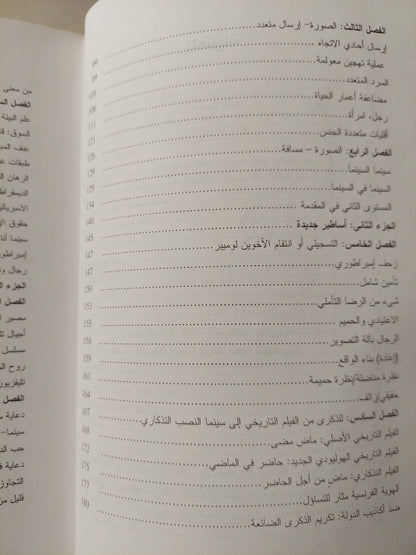 الفصل الثالث: الصورة– إرسال متعدد
إرسال أحادي الاتجاه 99
عملية تهجين معولمة 99
السرد المتعدد
مضاعفة أعمار الحياة 106
رجل، امرأة 113
أقليات متعددة الجنس
الفصل الرابع: الصورة – مسافة 126
سينما السينما 129
السينما في السينما 129
المستوى الثاني في المقدمة 134
الجزء الثاني: أساطير جديدة 140
الفصل الخامس: التسجيلي أو انتقام الأخوين لوميير 147
زحف إمبراطوري 147
تأمين شامل 150
شيء من الرضا التأملي 153
الاعتيادي والحميم 155
الرجال بآلة التصوير 158
(إعادة) بناء الواقع 159
نظرة مناضلة/نظرة حميمة 161
حقيقي/زائف 164
الفصل السادس: للذكرى من الفيلم التاريخي إلى سينما النصب التذكاري 167
الفيلم التاريخي الأصلي: ماض مضى 168
الفيلم التاريخي الهوليودي الجديد: حاضر في الماضي 172
الفيلم التذكاري: ماض من أجل الحاضر 175
الهوية الفرنسية مثار للتساؤل 177
ضد أكاذيب الدولة: تكريم الذكرى الضائعة 180
من معنى
الفصل
علم البيئة
السوق:
عنف
طبقات
الرهان
الديمقراط
الامبريالية
حقوق
سينما
إمبراطور
الجزء
رجال و
الفصل
مصير
أجيال
مسلسل
روح
تليفزيون
الفصل
دعاية
سينما–
حب
دعاية
التجاوز
قليل من